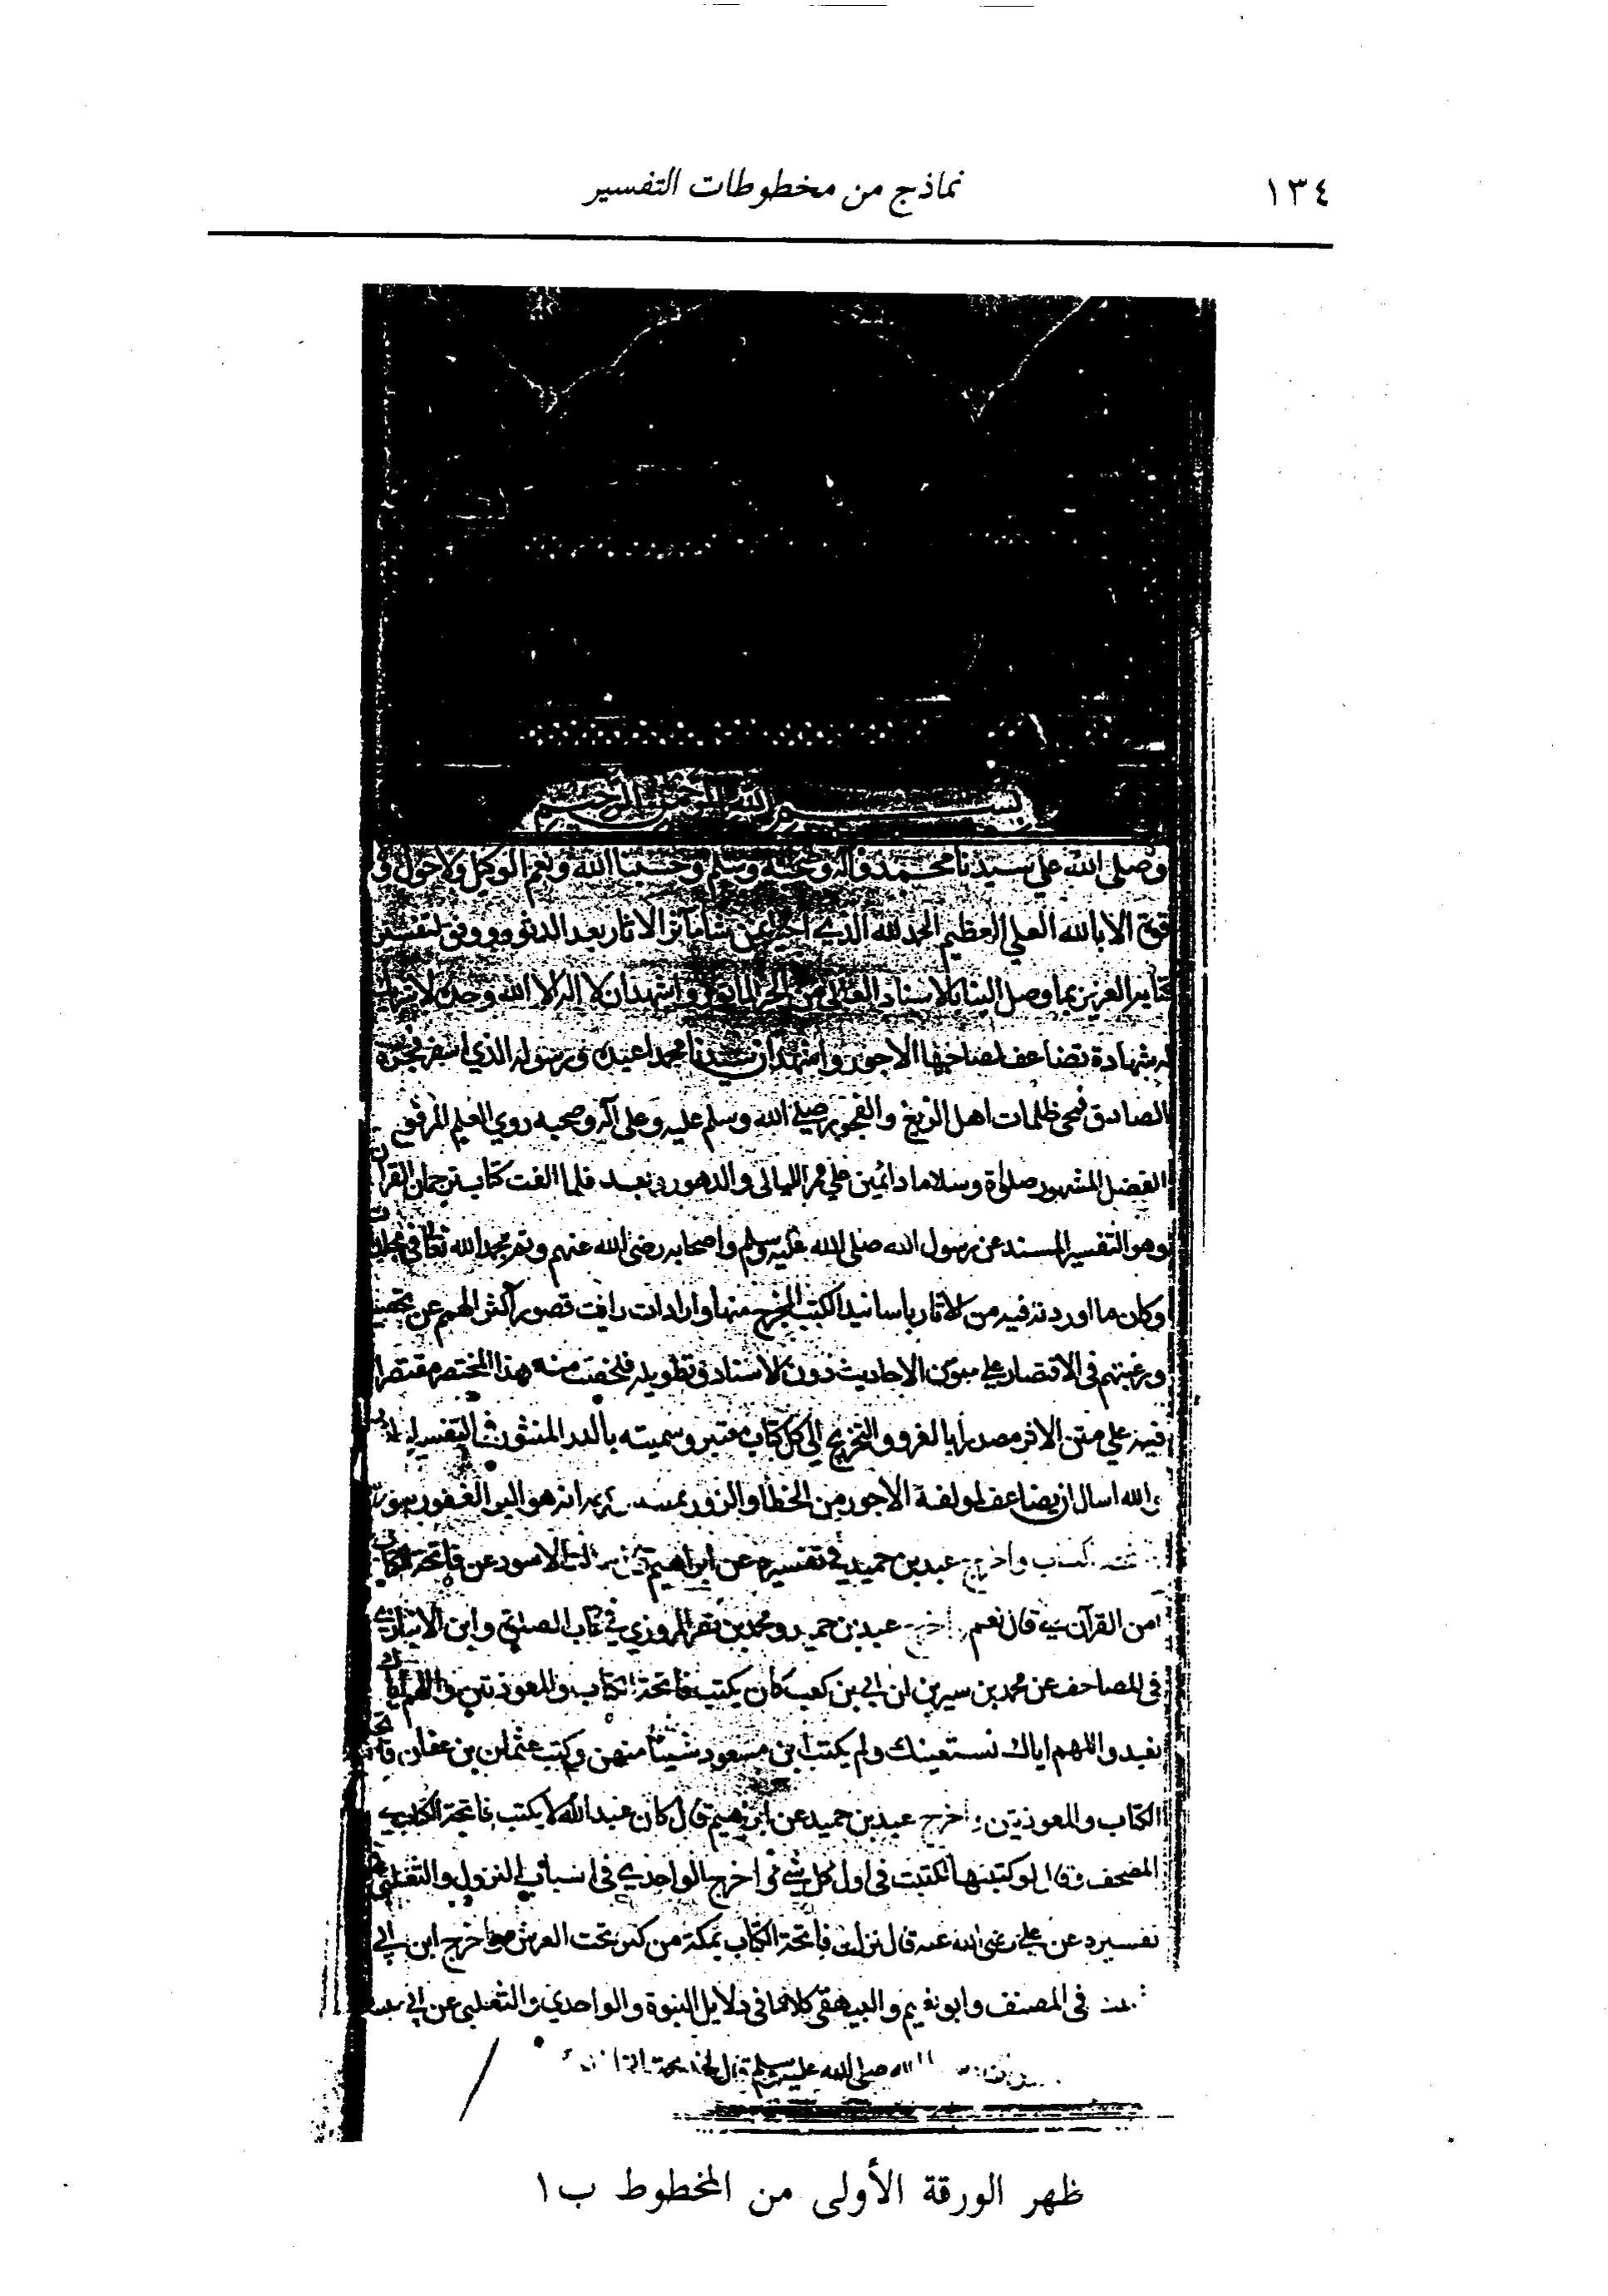 ١٣٤
نماذج من مخطوطات التفسير
بسم الله الرحمن الرحيم
وصلى الله على سيدنا محمد وآله وصحبه وسلم وحسبنا الله ونعم الوكيل ولا حول ولا
قوة الا بالله العلي العظيم الحمد لله الذي احيا بمن شا مآثر الاثار بعد الدثور ووفق لتفسير
كتابه العزيز بما وصل الينا بالاسناد العالي من الخبر الماثور واشهد ان لا اله الا الله وحده لا شريك
له شهادة تضاعف لصاحبها الاجور واشهد ان سيدنا محمدا عبده ورسوله الذي اسفر فجره
الصادق فمحى ظلمات اهل الزيغ والفجور صلى الله وسلم عليه وعلى آله وصحبه ذوي العلم المرفوع
الفضل المشهور صلوة وسلاما دائمين على ممر الليالى والدهور وبعد فلما الفت كتاب ترجمان القران
وهو التفسير المسند عن رسول الله صلى الله عليه وسلم واصحابه رضى الله عنهم وتم بحمد الله تعالى في مجلدات
وكان ما اوردته فيه من الاثار باسانيد الكتب المخرج منها واردات رايت قصور اكثر الهمم عن تحصيله
ورغبتهم فى الاقتصار على متون الاحاديث دون الاسناد وتطويله فلخصت منه هذا المختصر مقتصرا
فيه على متن الاثر مصدرا بالعزو والتخريج الى كل كتاب معتبر وسميته بالدر المنثور في التفسير
والله اسال ان يضاعف لمولفه الاجور من الخطا والزور بمنه انه هو البر الغفور سورة
عبد بن حميد في تفسيره عن ابراهيم الاسود عن فاتحة الكتاب
امن القرآن هي قال نعم اخرج عبد بن حميد ومحمد بن نصر المروزي في كتاب الصلوة وابن الانباري
فى المصاحف عن محمد بن سيرين ان ابي بن كعب كان يكتب فاتحة الكتاب والمعوذتين واللهم اياك
نعبد واللهم اياك نستعينك ولم يكتب ابن مسعود شيئا منهن وكتب عثمان بن عفان فاتحة
الكتاب والمعوذتين اخرج عبد بن حميد عن ابراهيم قال كان عبد الله لا يكتب فاتحة الكتاب في
المصحف وقال لو كتبتها لكتبت فى اول كل شي واخرج الواحدي فى اسباب النزول والثعلبي
تفسيره عن علي رضى الله عنه قال نزلت فاتحة الكتاب بمكة من كنز تحت العرش واخرج ابن ابي
فى المصنف وابو نعيم والبيهقى كلاهما فى دلايل النبوة والواحدي والثعلبي عن ابي
صلى الله عليه وسلم قال
ظهر الورقة الأولى من المخطوط ب١